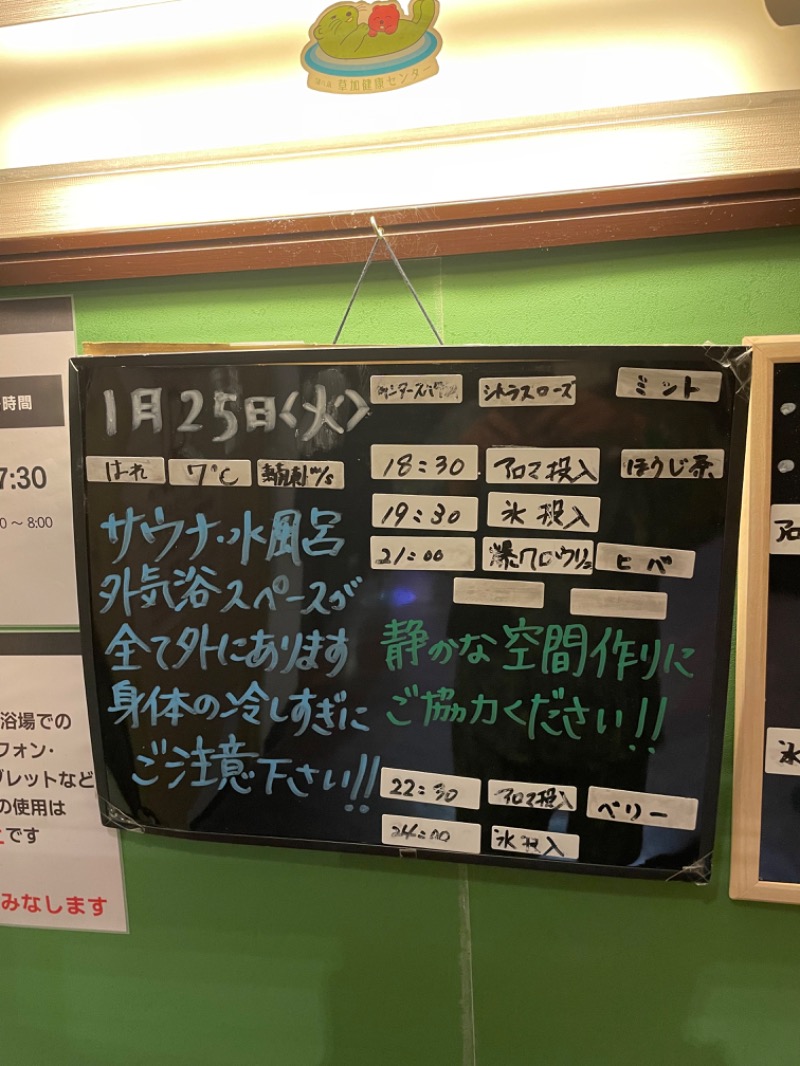 草加健康センター
1月25日〈火〉
シトラスローズ
ミント
はーれ
7℃
m/s
18:30
アロマ投入
ほうじ茶
19:30
氷投入
21:00
爆ロウリュ
ヒバ
サウナ・水風呂
外気浴スペースが
全て外にあります
身体の冷しすぎに
ご注意下さい!!
静かな空間作りに
ご協力ください!!
22:30
アロマ投入
ベリー
24:00
氷投入
時間
7:30
0～8:00
浴場での
フォン・
ブレットなど
の使用は
です
みなします
アロ
氷